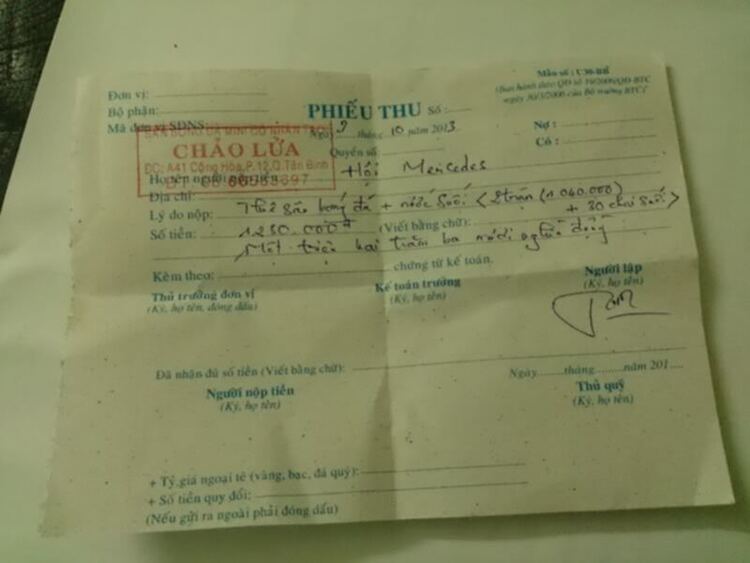 Mẫu số : C30-BB
(Ban hành theo QĐ số 19/2006/QĐ-BTC
ngày 30/3/2006 của Bộ trưởng BTC)
Đơn vị:
Bộ phận:
Mã đơn vị SDNS:
PHIẾU THU Số:
Ngày 9 tháng 10 năm 2013
Quyển số
Nợ :
Có :
SÂN BÓNG ĐÁ MINI CỎ NHÂN TẠO
CHẢO LỬA
ĐC: A41 Cộng Hòa, P.12, Q.Tân Bình
ĐT: 08 66553697
Họ tên người nộp tiền Hội Mercedes
Địa chỉ:
Lý do nộp: Thuê sân bóng đá + nước suối (2 trận (1.040.000)
+ 30 chai suối)
Số tiền: 1230.000đ (Viết bằng chữ):
Một triệu hai trăm ba mươi nghìn đồng
Kèm theo: chứng từ kế toán.
Thủ trưởng đơn vị
(Ký, họ tên, đóng dấu)
Kế toán trưởng
(Ký, họ tên)
Người lập
(Ký, họ tên)
Đã nhận đủ số tiền (Viết bằng chữ):
Ngày tháng năm 201
Người nộp tiền
(Ký, họ tên)
Thủ quỹ
(Ký, họ tên)
+ Tỷ giá ngoại tệ (vàng, bạc, đá quý):
+ Số tiền quy đổi:
(Nếu gửi ra ngoài phải đóng dấu)